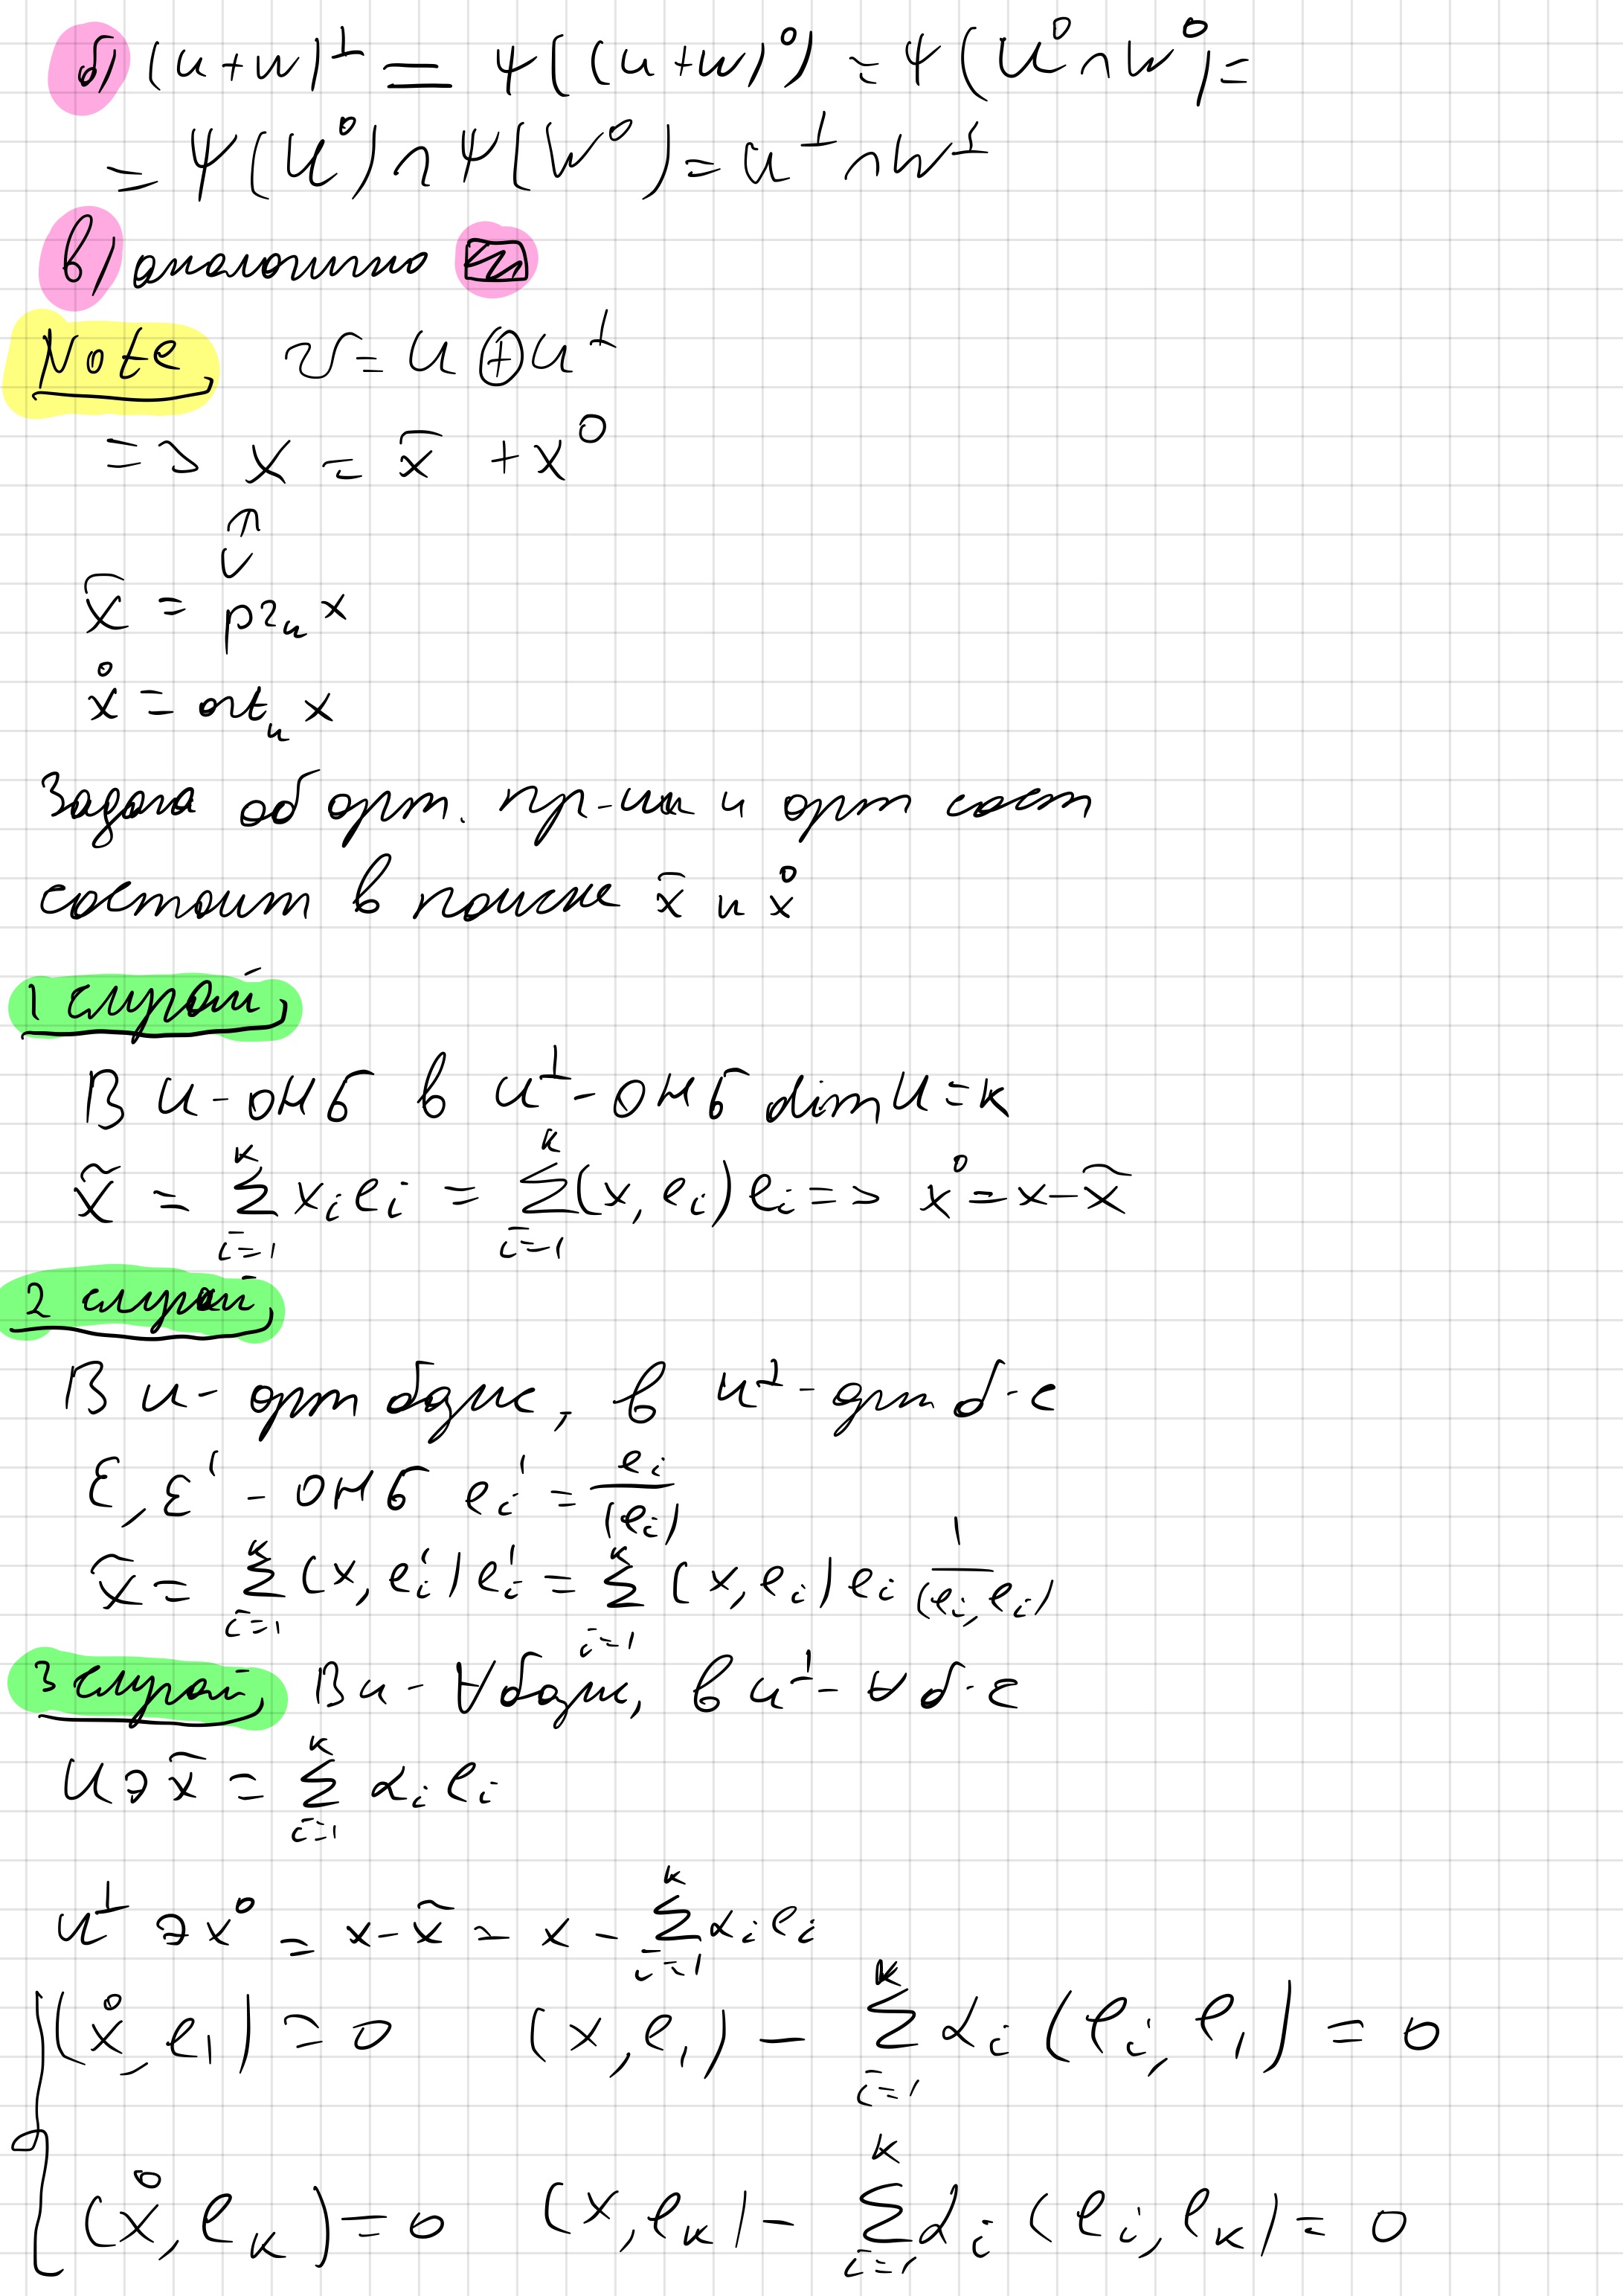 б) (u+w)^⊥ = ψ((u+w)^0) = ψ(U^0 ∩ W^0) =
= ψ(U^0) ∩ ψ(W^0) = u^⊥ ∩ w^⊥
в) аналогично
Note V = U ⊕ U^⊥
=> x = x̃ + x^0
x̃ = pr_u x
x̊ = ort_u x
Задача об орт. пр-ии и орт сост
состоит в поиске x̃ и x̊
1 случай
В U - ОНБ в U^⊥ - ОНБ dim U = k
x̃ = Σ_{i=1}^{k} x_i e_i = Σ_{i=1}^{k} (x, e_i) e_i => x̊ = x - x̃
2 случай
В U - орт базис, в U^⊥ - орт б-с
ε, ε' - ОНБ e_i' = e_i / |e_i|
x̃ = Σ_{i=1}^{k} (x, e_i') e_i' = Σ_{i=1}^{k} (x, e_i) e_i 1/(e_i, e_i)
3 случай В U - ∀ базис, в U^⊥ - ∀ б-с
U ∋ x̃ = Σ_{i=1}^{k} α_i e_i
U^⊥ ∋ x^0 = x - x̃ = x - Σ_{i=1}^{k} α_i e_i
(x̊, e_1) = 0 (x, e_1) - Σ_{i=1}^{k} α_i (e_i, e_1) = 0
(x̊, e_k) = 0 (x, e_k) - Σ_{i=1}^{k} α_i (e_i, e_k) = 0